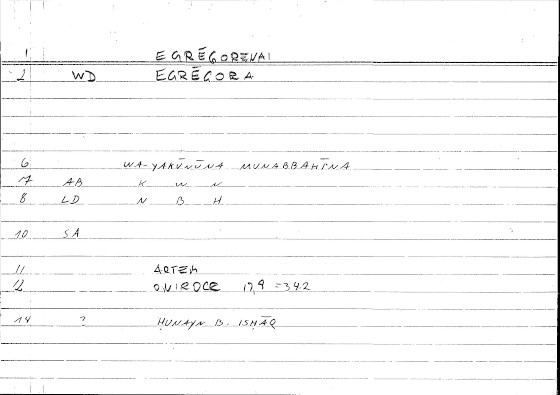 1 EGRĒGORENAI
2 WD EGRĒGORA
6 WA-YAKŪNŪNA MUNABBAHĪNA
7 AB K W N
8 LD N B H
10 SA
11 ARTEM
12 ONIROCR 17,9 = 342
14 ? ḤUNAYN B. ISḤĀQ